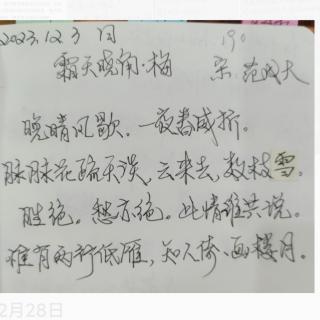 2023.12.3日 190
霜天晓角·梅 宋 范成大
晚晴风歇。一夜春威折。
脉脉花疏天淡,云来去,数枝雪。
胜绝。愁亦绝。此情谁共说。
惟有两行低雁,知人倚、画楼月。
2月28日